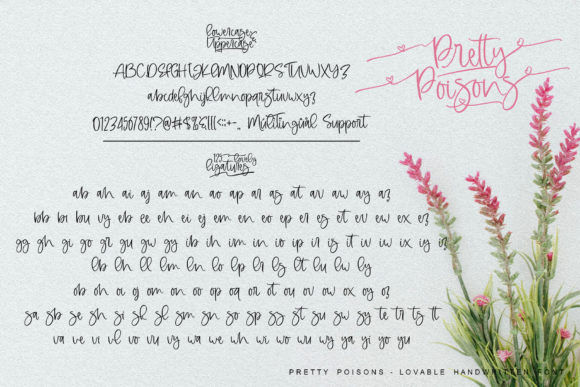 lowercase &
Uppercase
ABCDEFGHIJKLMNOPQRSTUVWXYZ
abcdefghijklmnopqrstuvwxyz
Multilingual Support
Pretty
Poisons
lovely
ligatures
ab ah ai aj am an ao ap ar as at av aw ay az
gg gh gi go gr gu gw gy ib ih im in io ip ir is it iv iw ix iy iz
lb lh ll lm ln lo lp lr ls lt lu lw ly
ob oh oi oj om on oo op oq or ot ou ov ow ox oy oz
sa sb se sh si sk sl sm sn so sp ss st su sw sy te tr ts tt
va ve vi vl vo vu vy wa we wh wi wo wu wy ya yi yo yu
PRETTY POISONS - LOVABLE HANDWRITTEN FONT